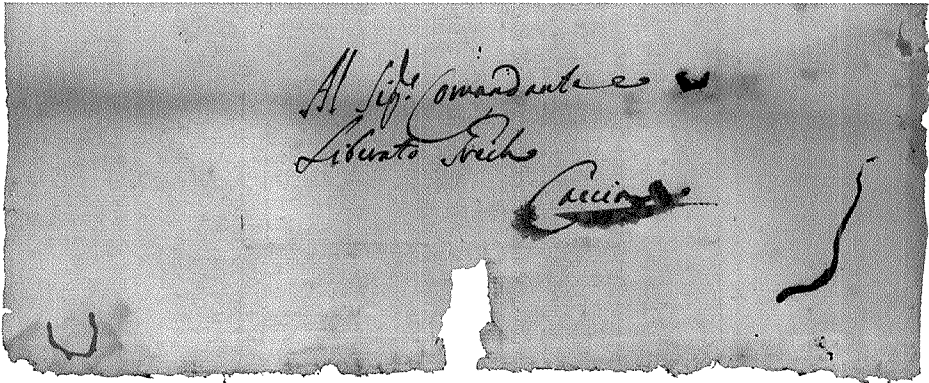 Al Sig.re Comandante
Liberato
Caccia